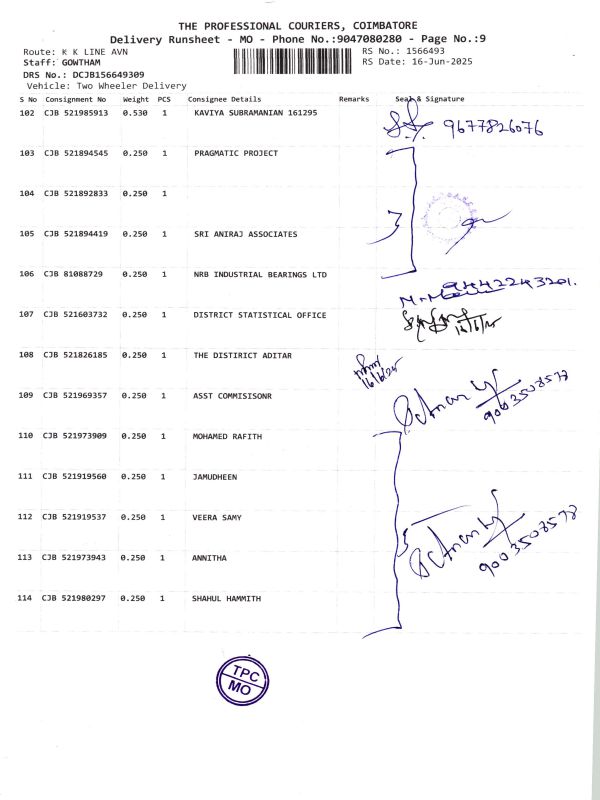 THE PROFESSIONAL COURIERS, COIMBATORE
Delivery Runsheet - MO - Phone No.:9047080280 - Page No.:9
Route: K K LINE AVN RS No.: 1566493
Staff: GOWTHAM RS Date: 16-Jun-2025
DRS No.: DCJB156649309
Vehicle: Two Wheeler Delivery
S No Consignment No Weight PCS Consignee Details Remarks Seal & Signature
102 CJB 521985913 0.530 1 KAVIYA SUBRAMANIAN 161295 9677826076
103 CJB 521894545 0.250 1 PRAGMATIC PROJECT
104 CJB 521892833 0.250 1
3
105 CJB 521894419 0.250 1 SRI ANIRAJ ASSOCIATES
106 CJB 81088729 0.250 1 NRB INDUSTRIAL BEARINGS LTD
9442243201.
107 CJB 521603732 0.250 1 DISTRICT STATISTICAL OFFICE
16/6/25
108 CJB 521826185 0.250 1 THE DISTIRICT ADITAR
16/6/25
109 CJB 521969357 0.250 1 ASST COMMISISONR 9003508577
110 CJB 521973909 0.250 1 MOHAMED RAFITH
111 CJB 521919560 0.250 1 JAMUDHEEN
112 CJB 521919537 0.250 1 VEERA SAMY
5 9003508578
113 CJB 521973943 0.250 1 ANNITHA
114 CJB 521980297 0.250 1 SHAHUL HAMMITH
TPC
MO